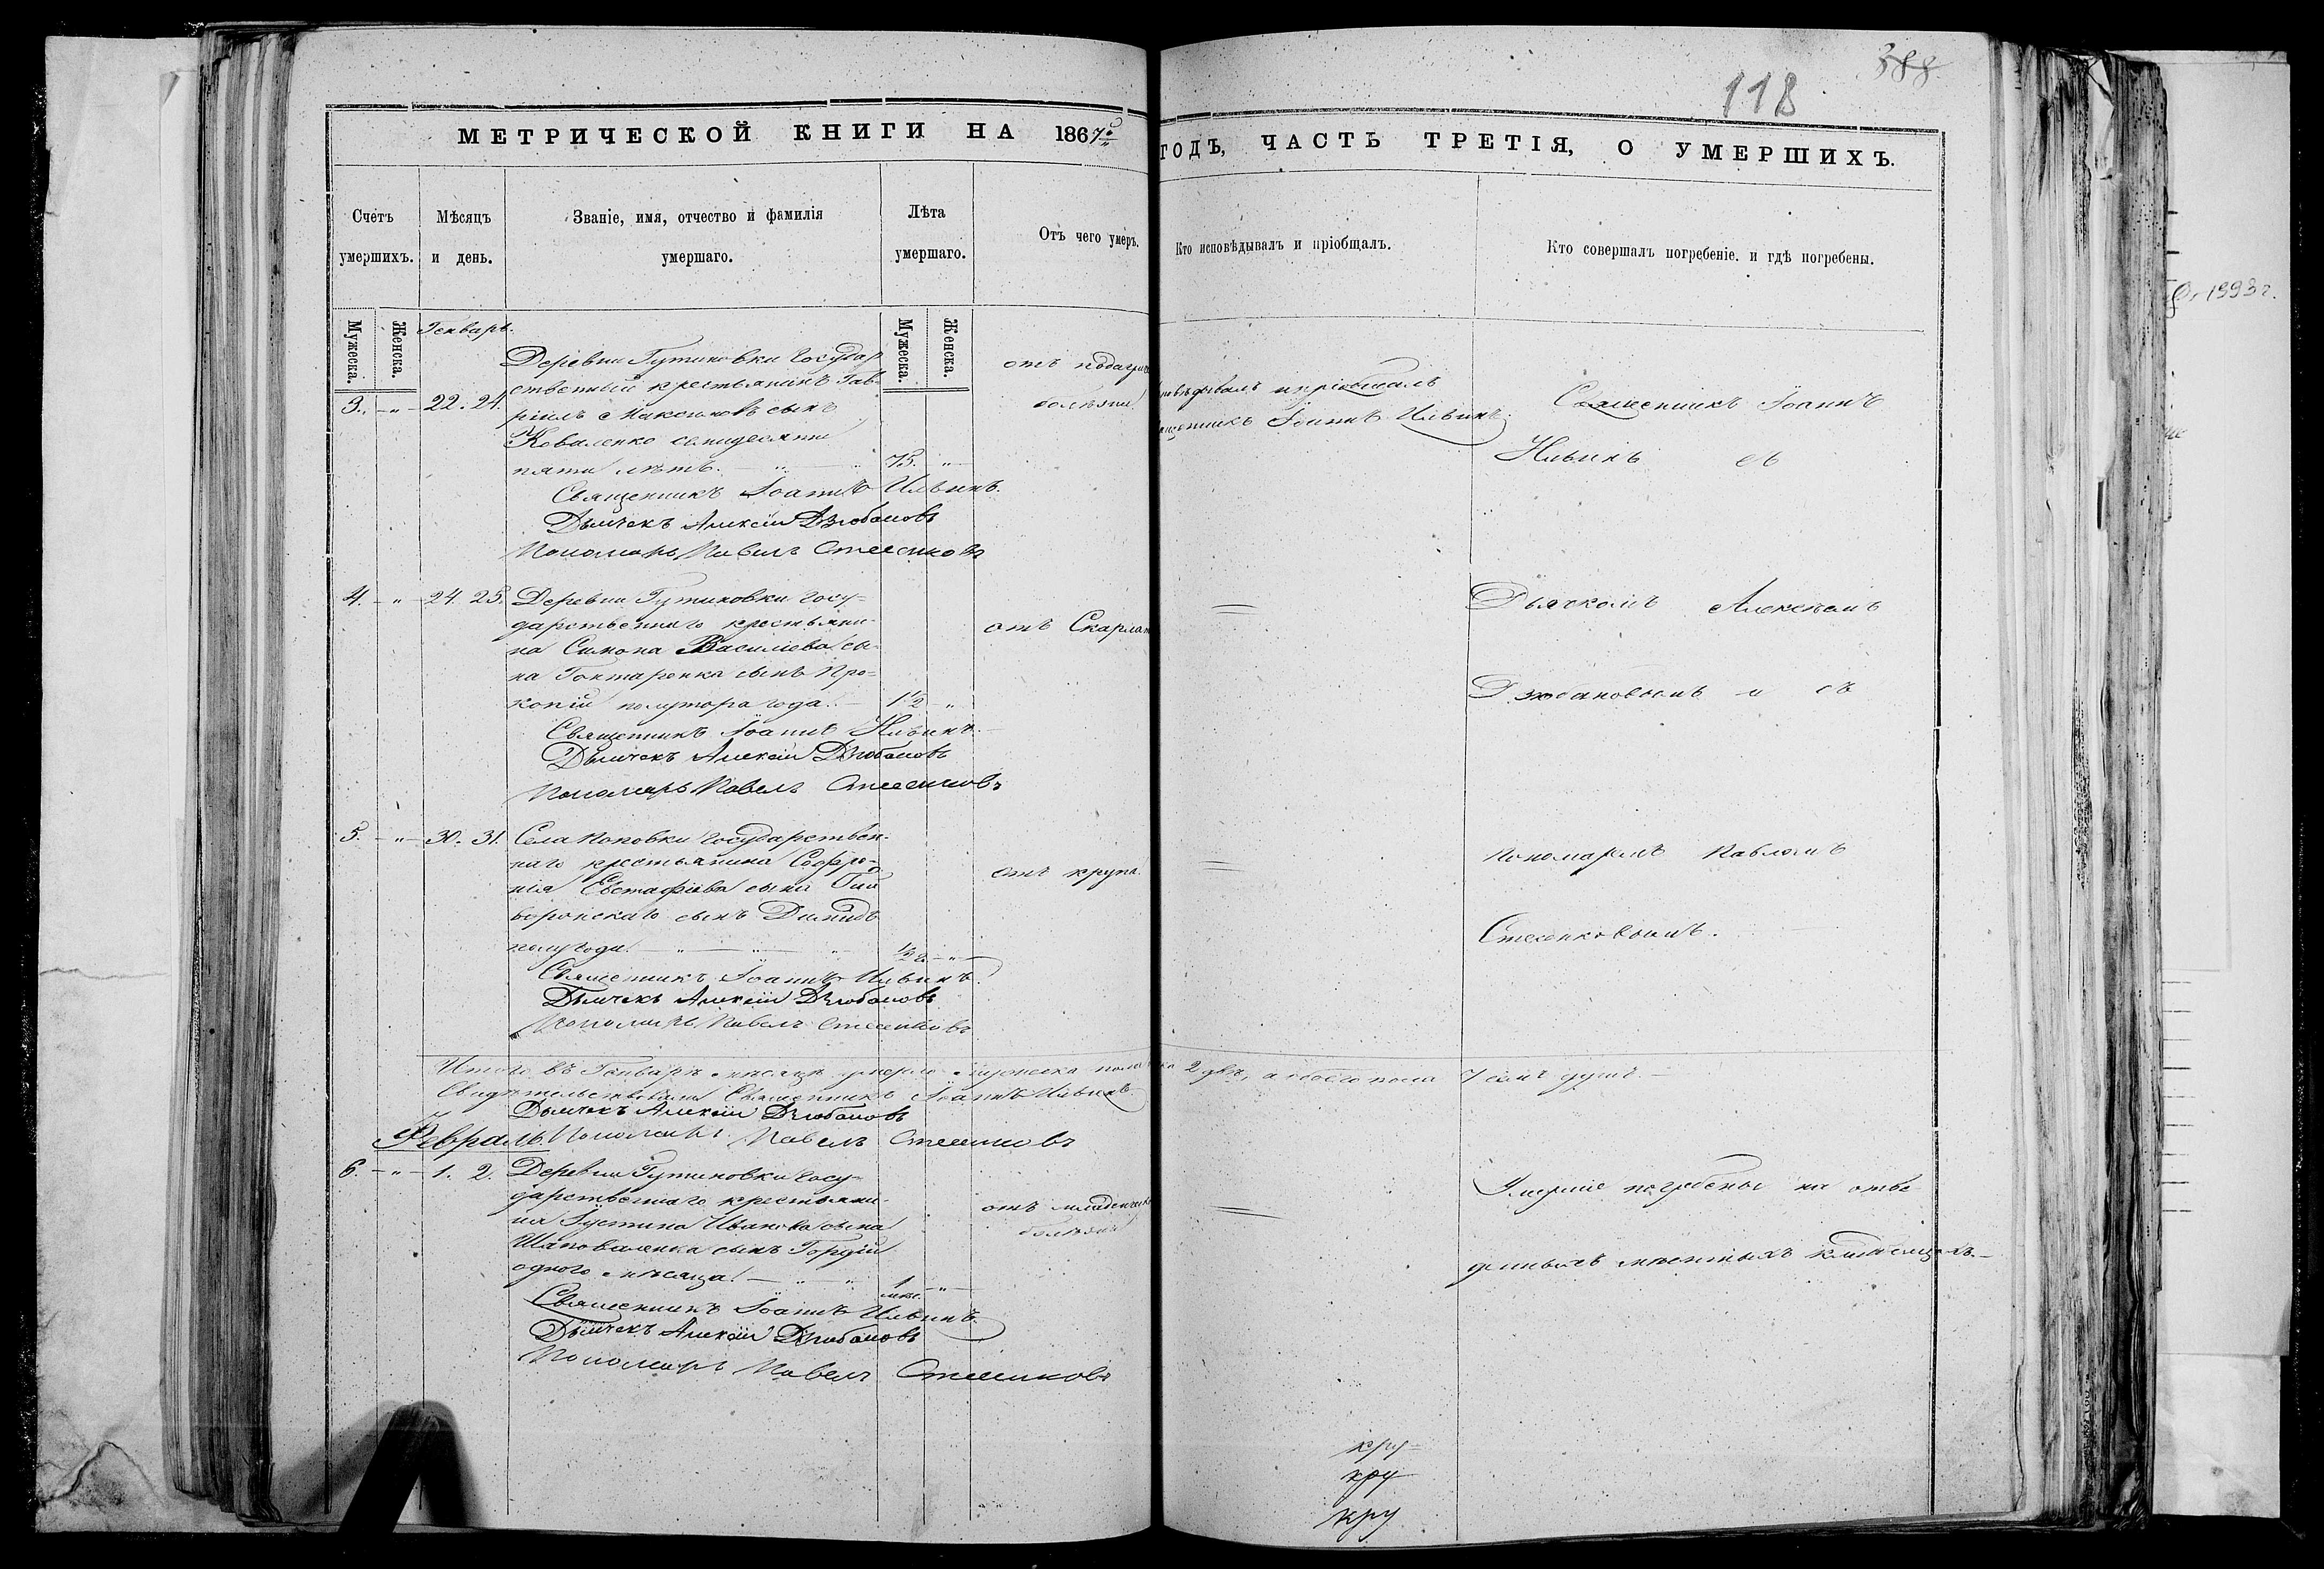 388
118
МЕТРИЧЕСКОЙ КНИГИ НА 1867го
ГОДЪ, ЧАСТЬ ТРЕТІЯ, О УМЕРШИХЪ.
Счетъ умершихъ.
Мѣсяцъ и день.
Званіе, имя, отчество и фамилія умершаго.
Лѣта умершаго.
Отъ чего умеръ.
Кто исповѣдывалъ и пріобщалъ.
Кто совершалъ погребеніе. и гдѣ погребены.
Мужеска.
Женска.
Генварь.
Мужеска.
Женска.
3. " 22. 24.
Деревни Гутиновки Государ
ственный крестьянинъ Гав-
ріилъ Максимовъ сынъ
Коваленко семидесяти
пяти лѣтъ. " 75. "
Священникъ Іоаннъ Ильинъ.
Дьячекъ Алексій Дзюбановъ
Пономарь Павелъ Стесенковъ
отъ подагрич
болѣзни
исповѣдывалъ и пріобщалъ
Священникъ Іоаннъ Ильинъ.
Священникъ Іоаннъ
Ильинъ съ
4. " 24. 25. Деревни Гутиновки Госу-
дарственнаго крестьяни-
на Симона Василіева сы-
на Гонтаренка сынъ Про-
копій полутора года. 1½ "
Священникъ Іоаннъ Ильинъ.
Дьячекъ Алексій Дзюбановъ
Пономарь Павелъ Стесенковъ
отъ Скарлат
Дьячкомъ Алексѣемъ
Дзюбановымъ и съ
5. " 30. 31. Села Поповки Государствен-
наго крестьянина Софро-
нія Евстафіева сына Гай
воронскаго сынъ Діомидъ
полугода. " " ½ г. "
Священникъ Іоаннъ Ильинъ.
Дьячекъ Алексій Дзюбановъ
Пономарь Павелъ Стесенковъ
отъ крупа
Пономаремъ Павломъ
Стесенковымъ.
Итого въ Генварѣ мѣсяцѣ умерло мужеска пола женска 2 двѣ, а обоего пола 7 семь душъ.
Свидѣтельствовали Священникъ Іоаннъ Ильинъ
Дьячекъ Алексій Дзюбановъ
Февраль. Пономарь Павелъ Стесенковъ
6. " 1. 2. Деревни Гутиновки Госу-
дарственнаго крестьяни-
на Іустина Иванова сына
Шаповаленка сынъ Гордій
одного мѣсяца. " " 1 мѣс. "
Священникъ Іоаннъ Ильинъ
Дьячекъ Алексій Дзюбановъ
Пономарь Павелъ Стесенковъ
отъ младенческ
болѣзни
Умершіе погребены на отве
денныхъ мѣстныхъ кладбищахъ.
кру-
кру
кру
1993 г.